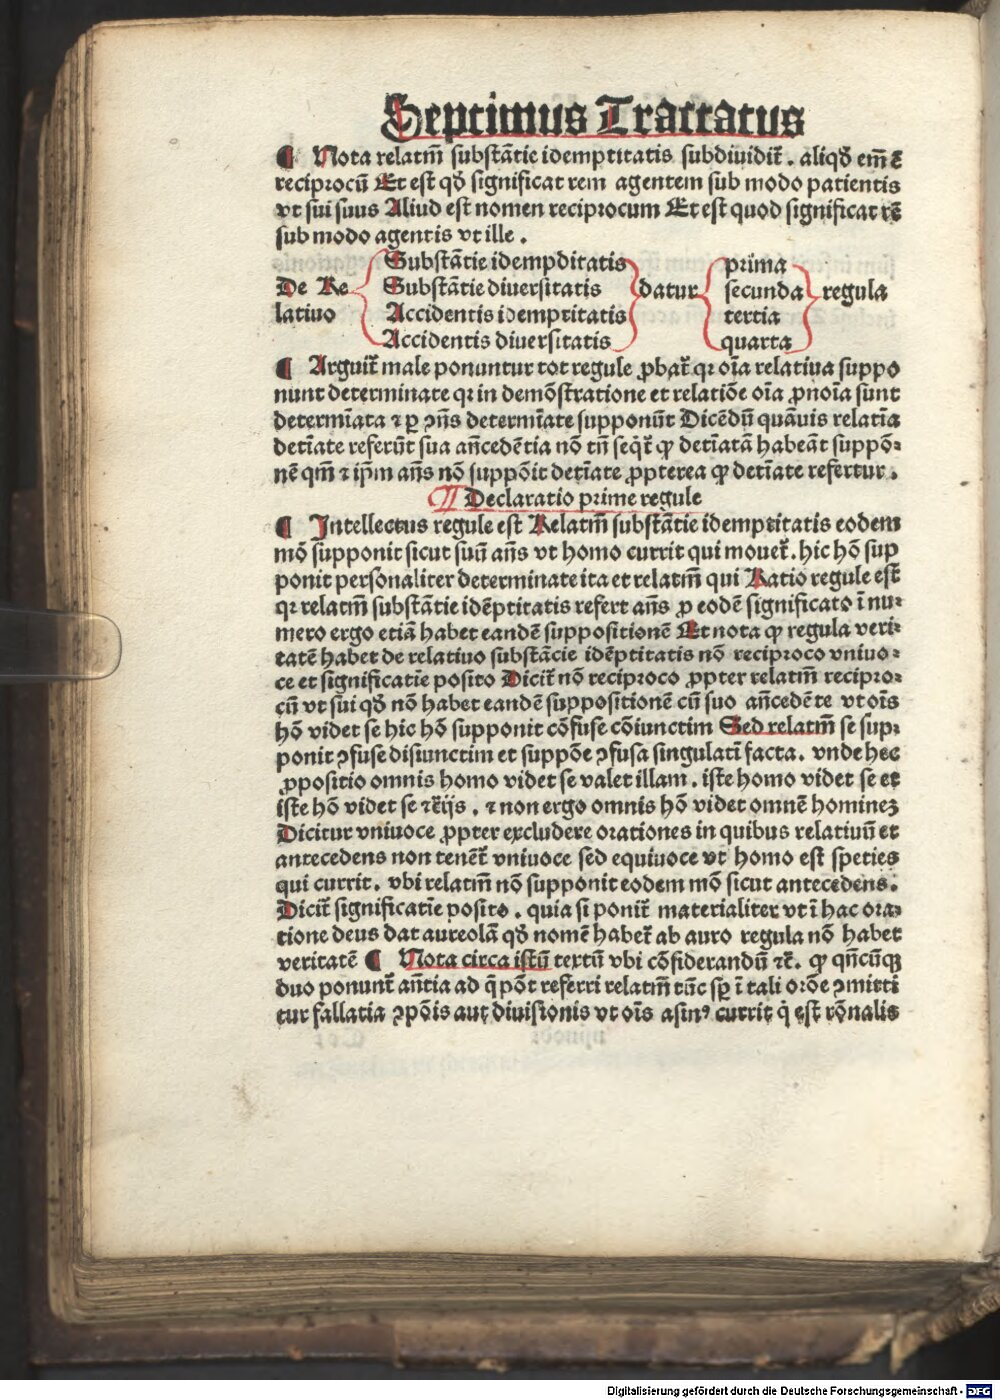 Septimus Tractatus
¶ Nota relatm̄ substātie idemptitatis subdiuidit̃. aliqđ em̄ ē
reciprocū Et est qđ significat rem agentem sub modo patientis
vt sui suus Aliud est nomen reciprocum Et est quod significat rē
sub modo agentis vt ille.
De Relatiuo
Substātie idempditatis
Substātie diuersitatis
Accidentis idemptitatis
Accidentis diuersitatis
datur
prima
secunda
tertia
quarta
regula
¶ Arguit̃ male ponuntur tot regule ꝓbat̃ qꝛ oīa relatiua suppo
nunt determinate qꝛ in demōstratione et relatiōe oīa ꝓnoīa sunt
determīata ⁊ ꝑ ꝯn̄s determīate supponūt Dicēdū quāuis relatīa
detīate referūt sua an̄cedētia nō tn̄ seq̄t̃ ꝙ detīatā habeāt suppō⸗
nē qm̄ ⁊ ip̄m an̄s nō suppōit detīate ꝓpterea ꝙ detīate refertur.
¶ Declaratio prime regule
¶ Intellectus regule est Relatm̄ substātie idemptitatis eodem
mō supponit sicut suū an̄s vt homo currit qui mouet̃. hic hō sup
ponit personaliter determinate ita et relatm̄ qui Ratio regule est
qꝛ relatm̄ substātie idēptitatis refert an̄s ꝑ eodē significato ī nu⸗
mero ergo etiā habet eandē suppositionē Et nota ꝙ regula veri⸗
tatē habet de relatiuo substācie idēptitatis nō reciproco vniuo⸗
ce et significatie posito Dicit̃ nō reciproco ꝓpter relatm̄ recipro⸗
cū vt sui qđ nō habet eandē suppositionē cū suo an̄cedēte vt oīs
hō videt se hic hō supponit cōfuse cōiunctim Sed relatm̄ se sup⸗
ponit ꝯfuse disiunctim et suppōe ꝯfusa singulatī facta. vnde hec
ꝓpositio omnis homo videt se valet illam. iste homo videt se et
iste hō videt se ⁊c̄ijs. ⁊ non ergo omnis hō videt omnē homineꝫ
Dicitur vniuoce ꝓpter excludere orationes in quibus relatiuū et
antecedens non tenēt̃ vniuoce sed equiuoce vt homo est speties
qui currit. vbi relatm̄ nō supponit eodem mō sicut antecedens.
Dicit̃ significatīe posito. quia si ponit̃ materialiter vt ī hac ora⸗
tione deus dat aureolā qđ nomē habet̃ ab auro regula nō habet
veritatē ¶ Nota circa istū textū vbi cōsiderandū ⁊c̄. ꝙ qn̄cūqꝫ
duo ponunt̃ an̄tia ad q̄ pōt referri relatm̄ tūc sꝑ ī tali orōe ꝯmitti
tur fallatia ꝯpōis aut diuisionis vt oīs asinꝰ currit q̇ est rōnalis
Digitalisierung gefördert durch die Deutsche Forschungsgemeinschaft - DFG